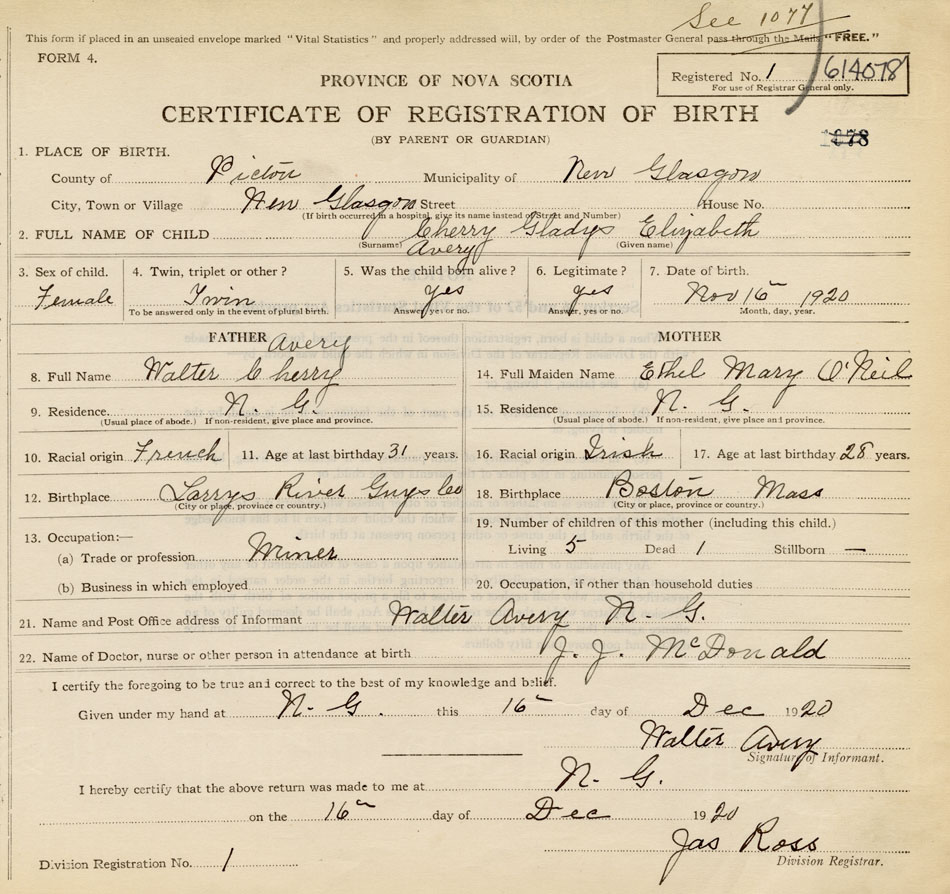 See 1077
This form if placed in an unsealed envelope marked "Vital Statistics" and properly addressed will, by order of the Postmaster General pass through the Mails "FREE."
FORM 4.
Registered No. 1 614078
For use of Registrar General only.
PROVINCE OF NOVA SCOTIA
CERTIFICATE OF REGISTRATION OF BIRTH
(BY PARENT OR GUARDIAN)
1078
1. PLACE OF BIRTH.
County of Pictou Municipality of New Glasgow
City, Town or Village New Glasgow Street House No.
(If birth occurred in a hospital, give its name instead of Street and Number)
2. FULL NAME OF CHILD Cherry Gladys Elizabeth
(Surname) Avery (Given name)
3. Sex of child. 4. Twin, triplet or other? 5. Was the child born alive? 6. Legitimate? 7. Date of birth.
Female Twin yes yes Nov 16 1920
To be answered only in the event of plural birth. Answer, yes or no. Answer, yes or no. Month, day, year.
FATHER Avery MOTHER
8. Full Name Walter Cherry 14. Full Maiden Name Ethel Mary O'Neil
9. Residence. N. G. 15. Residence N. G.
(Usual place of abode.) If non-resident, give place and province. (Usual place of abode.) If non-resident, give place and province.
10. Racial origin French 11. Age at last birthday 31 years. 16. Racial origin Irish 17. Age at last birthday 28 years.
12. Birthplace Larrys River Guys boo 18. Birthplace Boston Mass
(City or place, province or country.) (City or place, province or country.)
19. Number of children of this mother (including this child.)
13. Occupation:—
(a) Trade or profession Miner Living 5 Dead 1 Stillborn —
(b) Business in which employed 20. Occupation, if other than household duties
21. Name and Post Office address of Informant Walter Avery N. G.
22. Name of Doctor, nurse or other person in attendance at birth J. J. McDonald
I certify the foregoing to be true and correct to the best of my knowledge and belief.
Given under my hand at N. G. this 16 day of Dec 1920
Walter Avery
Signature of Informant.
I hereby certify that the above return was made to me at N. G.
on the 16 day of Dec 1920
Jas Ross
Division Registration No. 1 Division Registrar.